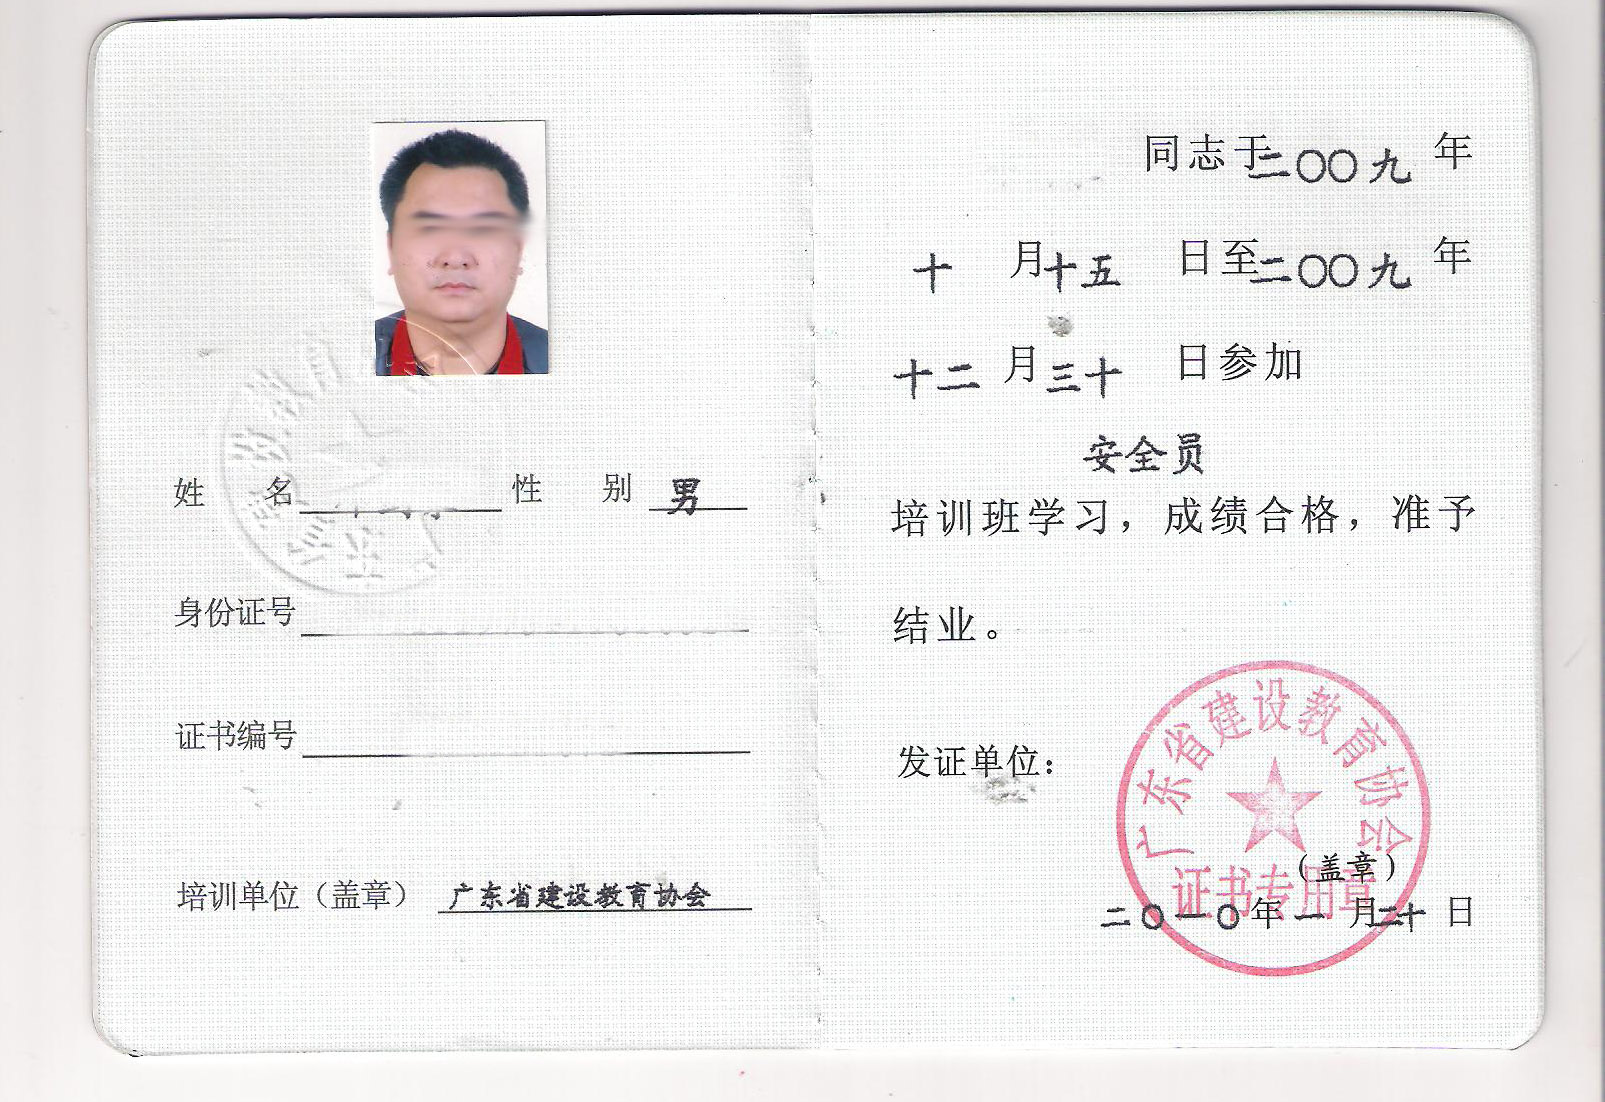 姓名 性别 男
身份证号
证书编号
培训单位（盖章） 广东省建设教育协会
同志于二〇〇九年
十月十五日至二〇〇九年
十二月三十日参加
安全员
培训班学习，成绩合格，准予
结业。
发证单位：
广东省建设教育协会
证书专用章
（盖章）
二〇一〇年一月二十日